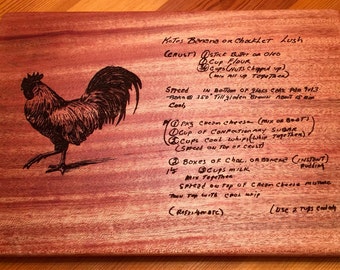 Kate's Banana or Choclet Lush
(Crust) 1 Stick Butter or Oleo
1 Cup Flour
Cups (Nuts Chopped up)
(mix all up Together)
Spread in bottom of Glass Cake Pan 9x13
350° Till golden Brown About 15 min
Cool
1 pkg Cream Cheese (mix or Beat)
1 Cup of Confectionary Sugar
Cups Cool Whip (Whip Together)
(Spread on Top of Crust)
2 Boxes of Choc. or Banana (instant) Pudding
Cups milk
mix Together
Spread on Top of Cream Cheese mixture
Then Top with Cool Whip
(Refrigerate)
(Use 2 Tubs Cool Whip)